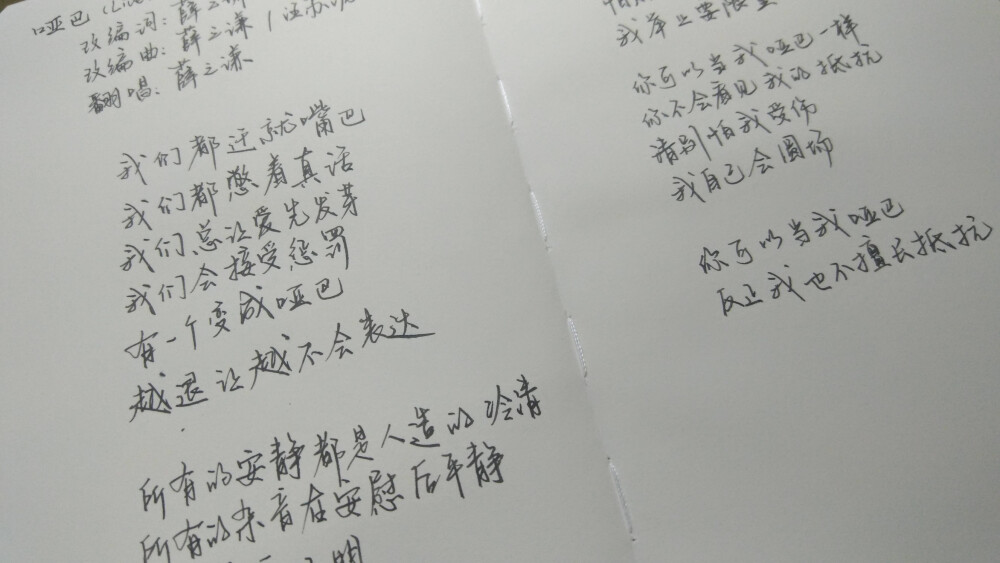 哑巴 (Live
改编词：薛之谦
改编曲：薛之谦 /
翻唱：薛之谦
我们都迁就嘴巴
我们都憋着真话
我们总让爱先发芽
我们会接受惩罚
有一个变成哑巴
越退让越不会表达
所有的安静都是人造的冷清
所有的杂音在安慰后平静
明
我举止要限量
你可以当我哑巴一样
你不会看见我的抵抗
请别怕我受伤
我自己会圆场
你可以当我哑巴
反正我也不擅长抵抗